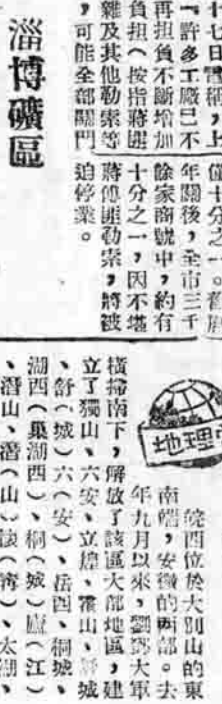 十七日電稱，上
『許多工廠已不
再担負不斷增加
負担（按指蔣匪
雜及其他勒索等
，可能全部關門
僅十分之一。舊曆
年關後，全市三千
餘家商號中，約有
十分之一，因不堪
蔣傅匪勒索，將被
迫停業。
淄博礦區
地理
皖西位於大別山的東
南端，安徽的西部。去
年九月以來，劉鄧大軍
橫掃南下，解放了該區大部地區，建
立了獨山、六安、立煌、霍山、城
、舒（城）六（安）、岳西、桐城、
湖西（巢湖西）、桐（城）廬（江）
、潛山、潛（山）懷（寧）、太湖、